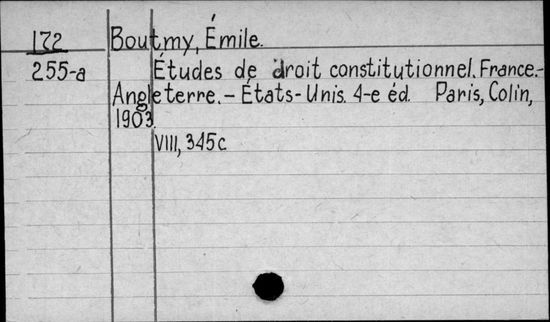 172 Boutmy, Émile.
255-a Études de droit constitutionnel. France.-
Angleterre.– États-Unis. 4-e éd. Paris, Colin,
1903.
VIII, 345c